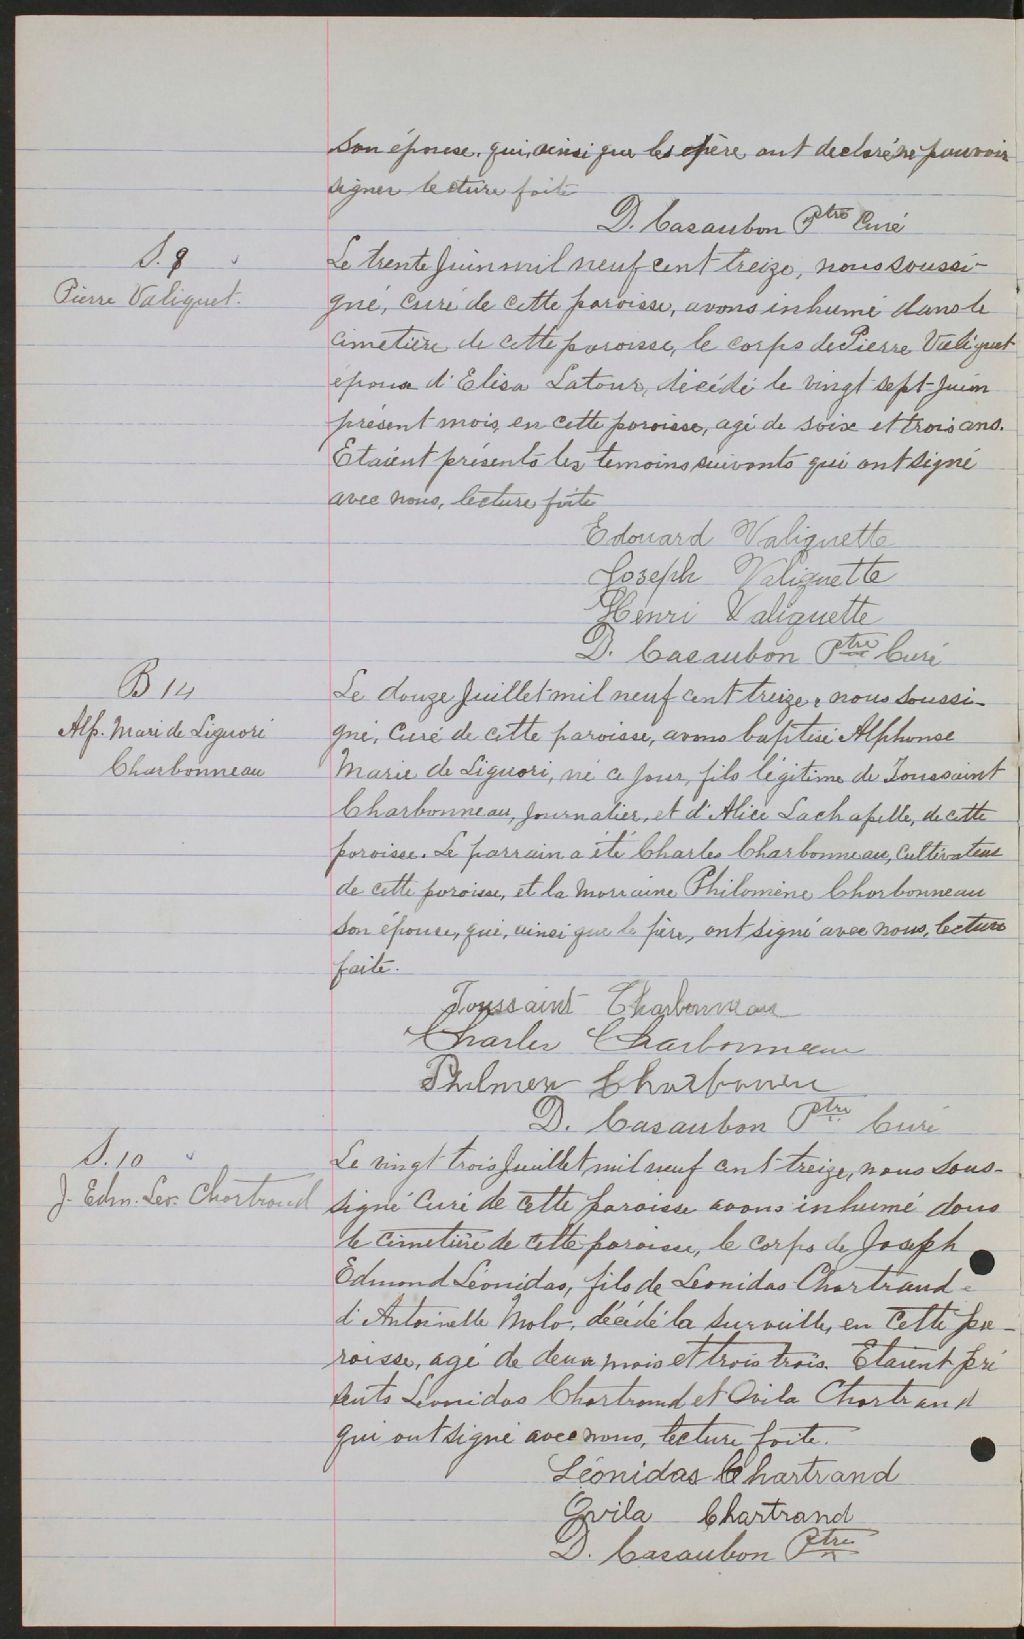 son épouse, qui, ainsi que les père ont declaré ne pouvoir
signer lecture faite
D. Casaubon Ptre Curé
S. 9
Pierre Valiquet.
Le trente Juin mil neuf cent treize, nous soussi-
gné, curé de cette paroisse, avons inhumé dans le
cimetière de cette paroisse, le corps de Pierre Valiquet
époux d'Elisa Latour, décédé le vingt sept Juin
présent mois, en cette paroisse, agé de soix et trois ans.
Etaient présents les temoins suivants qui ont signé
avec nous, lecture faite
Edouard Valiquette
Joseph Valiquette
Henri Valiquette
D. Casaubon Ptre Curé
B 14
Alp. Mari de Liguori
Charbonneau
Le douze Juillet mil neuf cent treize, nous soussi-
gné, Curé de cette paroisse, avons baptisé Alphonse
Marie de Liguori, né ce jour, fils légitime de Toussaint
Charbonneau, journalier, et d'Alice Lachapelle, de cette
paroisse. Le parrain a été Charles Charbonneau, Cultivateur
de cette paroisse, et la marraine Philomène Charbonneau
son épouse, qui, ainsi que le père, ont signé avec nous, lecture
faite.
Toussaint Charbonneau
Charles Charbonneau
Philmen Charbonneu
D. Casaubon Ptre Curé
S. 10
J. Edm. Leo. Chartrand
Le vingt trois Juillet, mil neuf cent treize, nous sous-
signé Curé de cette paroisse avons inhumé dans
le cimetière de cette paroisse, le corps de Joseph
Edmond Léonidas, fils de Leonidas Chartrand
d'Antoinette Molo, décédé la surveille, en cette pa-
roisse, agé de deux mois et trois trois. Etaient pré
sents Leonidas Chartrand et Ovila Chartrand
qui ont signé avec nous, lecture faite.
Léonidas Chartrand
Ovila Chartrand
D. Casaubon Ptre